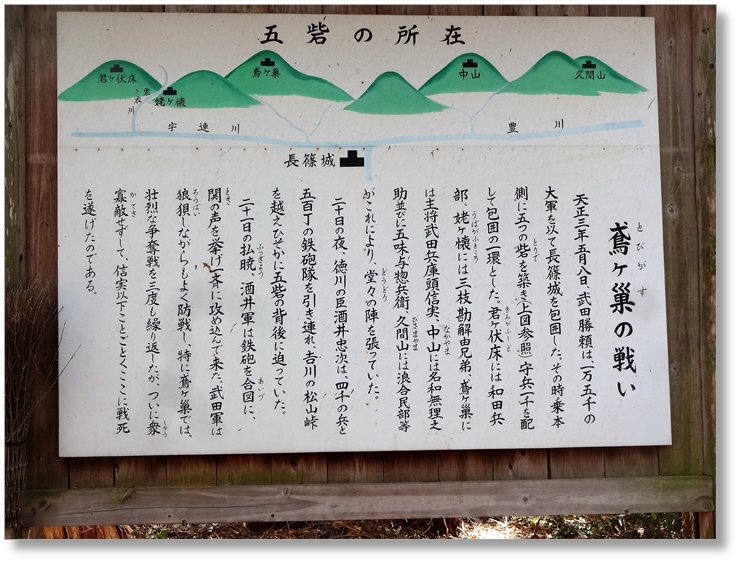 五砦の所在
君ケ伏床
姥ケ懐
鳶ケ巣
中山
久間山
宇連川
豊川
長篠城
鳶ヶ巣の戦い
とびがす
天正三年五月八日、武田勝頼は、一万五千の
大軍を以て長篠城を包囲した。その時乗本
側に五つの砦を築き(上図参照)守兵一千を配
とりで
して包囲の一環とした。君ケ伏床には和田兵
きみがふしど
部、姥ヶ懐には三枝勘解由兄弟、鳶ヶ巣に
うばがふところ
は主将武田兵庫頭信実、中山には名和無理之
なかやま
助並びに五味与惣兵衛、久間山には浪合民部等
ひさまやま
がこれにより、堂々の陣を張っていた。
どうどう
二十日の夜、徳川の臣酒井忠次は、四千の兵と
五百丁の鉄砲隊を引き連れ、吉川の松山峠
を越えひそかに五砦の背後に迫っていた。
二十一日の払暁、酒井軍は鉄砲を合図に、
ふつぎょう
あいづ
関の声を挙げ一斉に攻め込んで来た。武田軍は
とき
狼狽しながらもよく防戦し、特に鳶ヶ巣では、
ろうばい
壮烈な争奪戦を三度も繰り返したが、ついに衆
しゅう
寡敵せずして、信実以下ことごとくここに戦死
かてき
を遂げたのである。